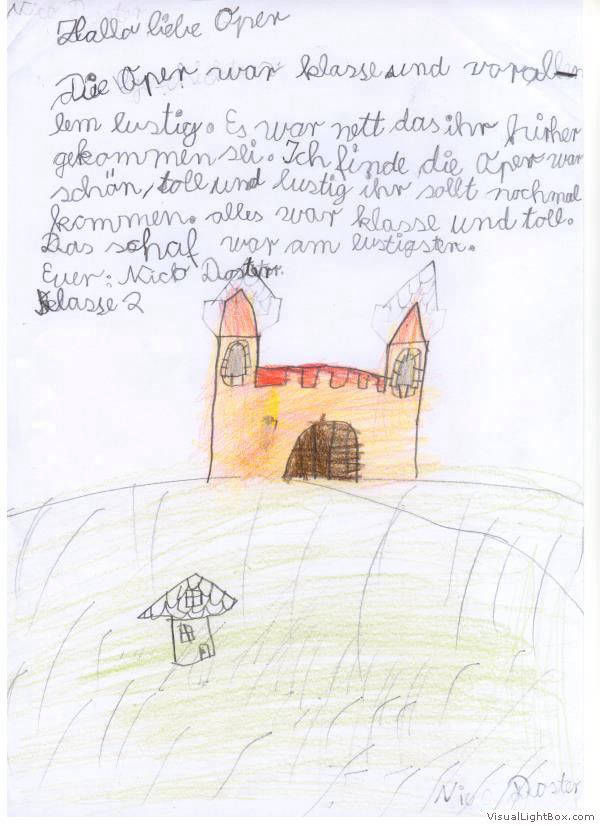 Nico Doster
Hallo liebe Oper
Die Oper war klasse und voral-
lem lustig. Es war nett das ihr hirher
gekommen sei. Ich finde die Oper war
schön, toll und lustig ihr sollt nochmal
kommen. alles war klasse und toll.
Das schaf war am lustigsten.
Euer: Nico Doster
Klasse 2
Nico Doster
VisualLightBox.com